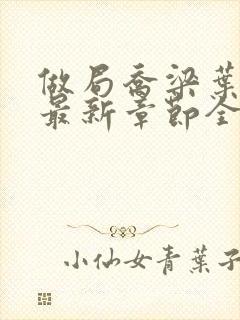 做局乔梁葉
最新章節全
小仙女青葉子